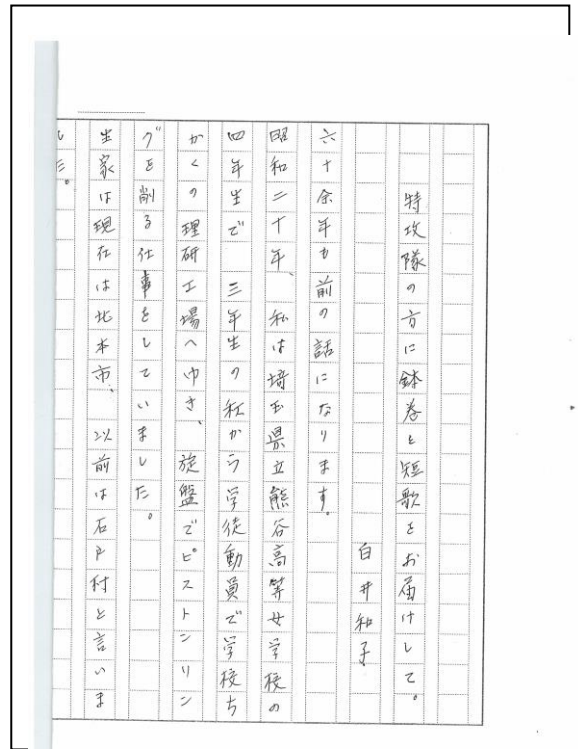 特攻隊の方に鉢巻と短歌をお届けして。
白井和子
六十余年も前の話になります。
昭和二十年、私は埼玉県立熊谷高等女学校の
四年生で 三年生の秋から学徒動員で学校ち
かくの理研工場へゆき、旋盤でピストンリン
グを削る仕事をしていました。
生家は現在は北本市、以前は石戸村と言いま
した。